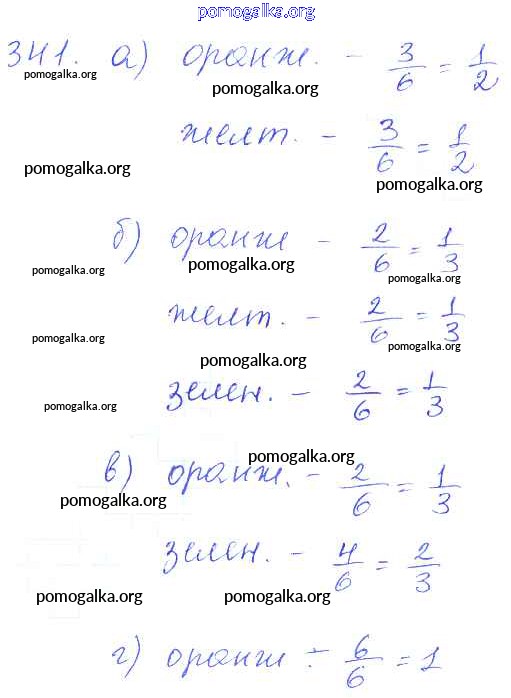 pomogalka.org
341. а) оранж. - 3/6 = 1/2
pomogalka.org
pomogalka.org
желт. - 3/6 = 1/2
pomogalka.org
pomogalka.org
б) оранж - 2/6 = 1/3
pomogalka.org
pomogalka.org
pomogalka.org
желт. - 2/6 = 1/3
pomogalka.org
pomogalka.org
pomogalka.org
зелен. - 2/6 = 1/3
pomogalka.org
pomogalka.org
в) оранж. - 2/6 = 1/3
pomogalka.org
зелен. - 4/6 = 2/3
pomogalka.org
pomogalka.org
г) оранж - 6/6 = 1